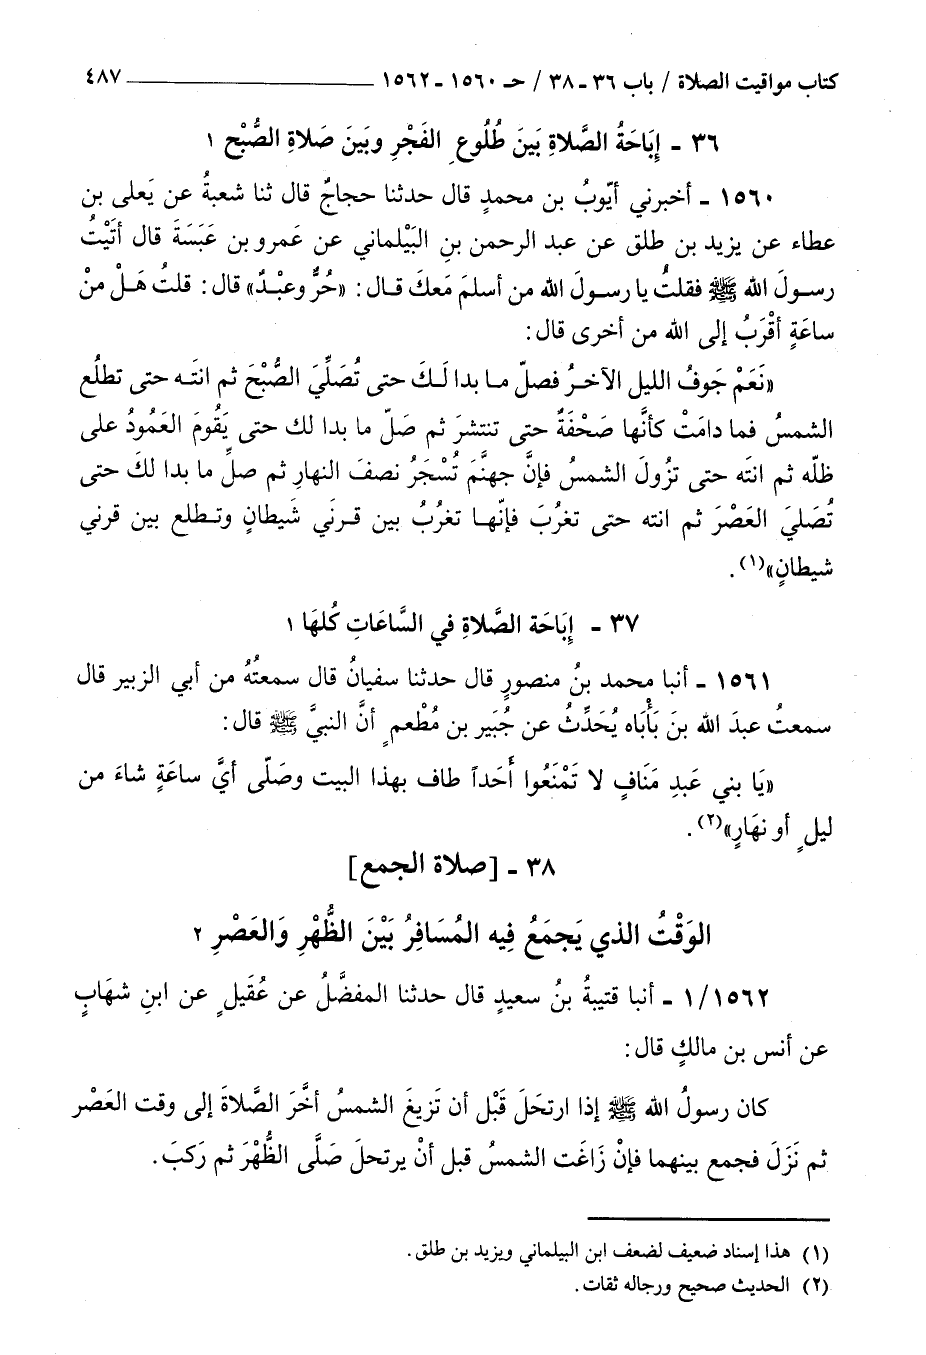 كتاب مواقيت الصلاة / باب ٣٦ - ٣٨ / حـ ١٥٦٠ - ١٥٦٢ ٤٨٧
٣٦ - إبَاحَةُ الصَّلاةِ بَينَ طُلُوعِ الفَجْرِ وبَينَ صَلاةِ الصُّبْحِ ١
١٥٦٠ - أخبرني أيّوبُ بن محمدٍ قال حدثنا حجاجٌ قال ثنا شعبةُ عن يَعلى بن
عطاء عن يزيد بن طلق عن عبد الرحمن بنِ البَيْلماني عن عَمرو بن عَبَسَةَ قال أتَيْتُ
رسولَ الله ﷺ فقلتُ يا رسولَ الله من أسلمَ مَعكَ قال: «حُرٌّ وعبْدٌ» قال: قلتُ هَلْ منْ
ساعَةٍ أقْرَبُ إلى الله من أخرى قال:
«نَعَمْ جَوفُ الليل الآخرُ فصلّ ما بدا لَكَ حتى تُصَلِّيَ الصُّبْحَ ثم انتَه حتى تطلُع
الشمسُ فما دامَتْ كأنَّها صَحْفَةٌ حتى تنتشرَ ثم صَلّ ما بدا لك حتى يَقُومَ العَمُودُ على
ظلّه ثم انتَه حتى تزُولَ الشمسُ فإنَّ جهنَّمَ تُسْجَرُ نصفَ النهارِ ثم صلِّ ما بدا لكَ حتى
تُصَليَ العَصْرَ ثم انته حتى تغرُبَ فإنّها تغرُبُ بين قرنَي شَيطانٍ وتطلع بين قرني
شيطانٍ»(١).
٣٧ - إبَاحَة الصَّلاةِ في السَّاعَاتِ كُلهَا ١
١٥٦١ - أنبا محمد بنُ منصورٍ قال حدثنا سفيانُ قال سمعتُهُ من أبي الزبير قال
سمعتُ عبدَ الله بنَ بَأْبَاه يُحَدِّثُ عن جُبَير بن مُطْعمٍ أنَّ النبيَّ ﷺ قال:
«يَا بني عَبدِ مَنَافٍ لا تَمْنَعُوا أَحَداً طاف بهذا البيت وصَلّى أيَّ ساعَةٍ شاءَ من
ليلٍ أو نهَارٍ»(٢).
٣٨ - [صلاة الجمع]
الوَقْتُ الذي يَجمَعُ فِيه المُسَافِرُ بَيْنَ الظُّهْرِ وَالعَصْرِ ٢
١/١٥٦٢ - أنبا قتيبةُ بنُ سعيدٍ قال حدثنا المفضَّلُ عن عُقَيلٍ عن ابنِ شهَابٍ
عن أنس بن مالكٍ قال:
كان رسولُ الله ﷺ إذا ارتحَلَ قَبْل أن تَزيغَ الشمسُ أخَّرَ الصَّلاةَ إلى وقت العَصْر
ثم نَزَلَ فجمع بينهما فإنْ زَاغَت الشمسُ قبل أنْ يرتحلَ صَلَّى الظُّهْرَ ثم رَكبَ.
(١) هذا إسناد ضعيف لضعف ابن البيلماني ويزيد بن طلق.
(٢) الحديث صحيح ورجاله ثقات.